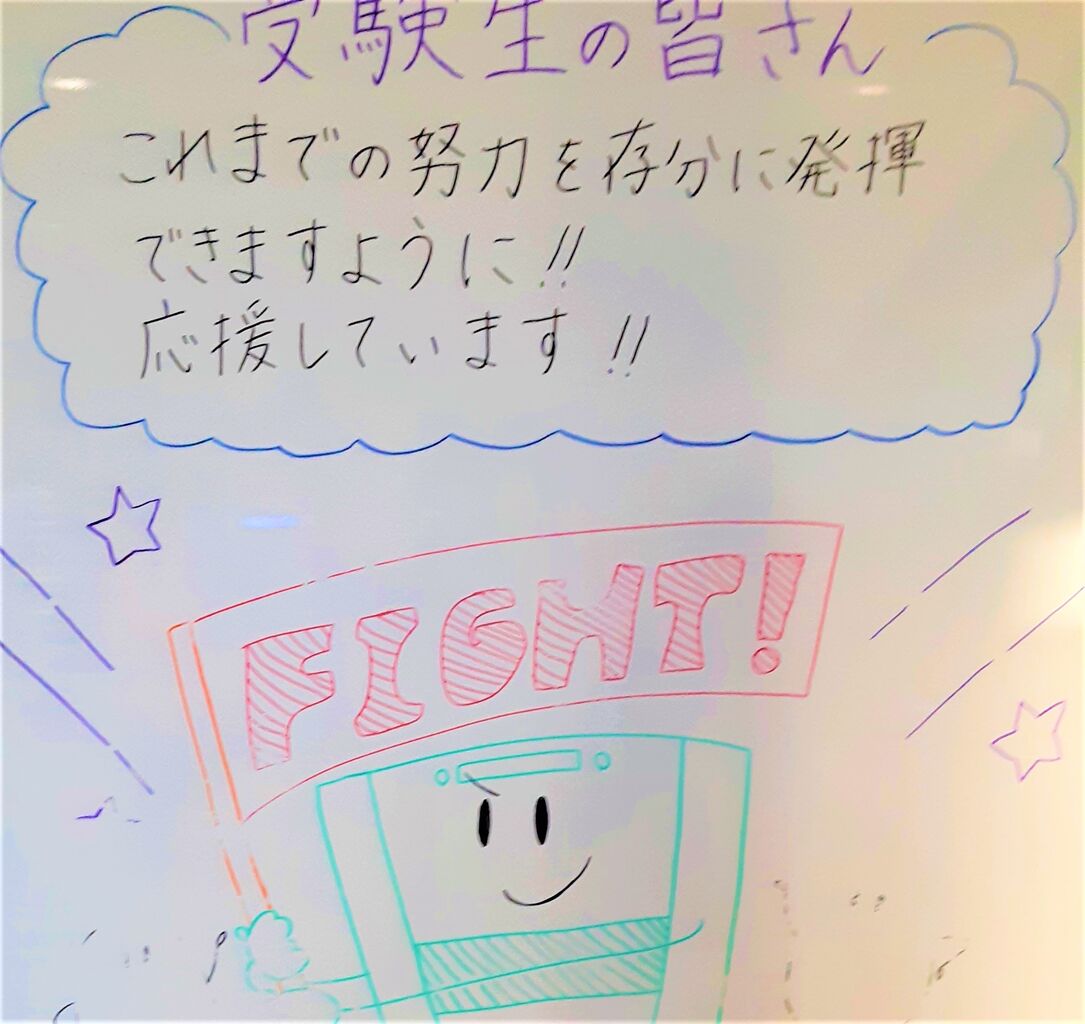 受験生の皆さん
これまでの努力を存分に発揮
できますように!!
応援しています!!
FIGHT!